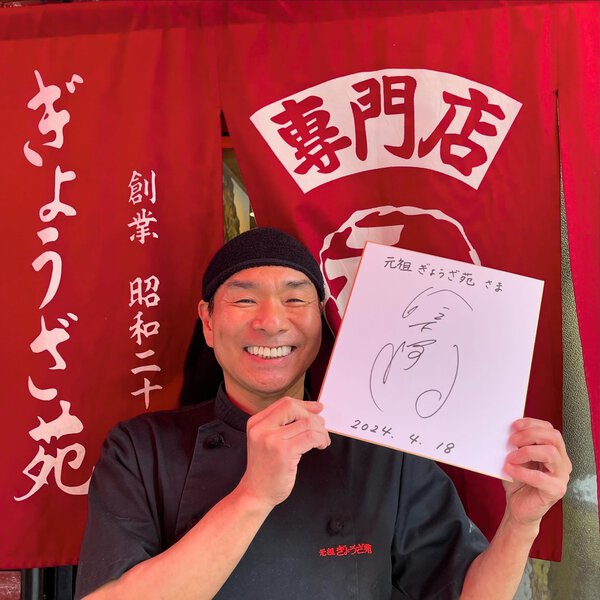 ぎょうざ苑
創業 昭和二十
専門店
元祖 ぎょうざ苑 さま
2024. 4. 18
元祖 ぎょうざ苑